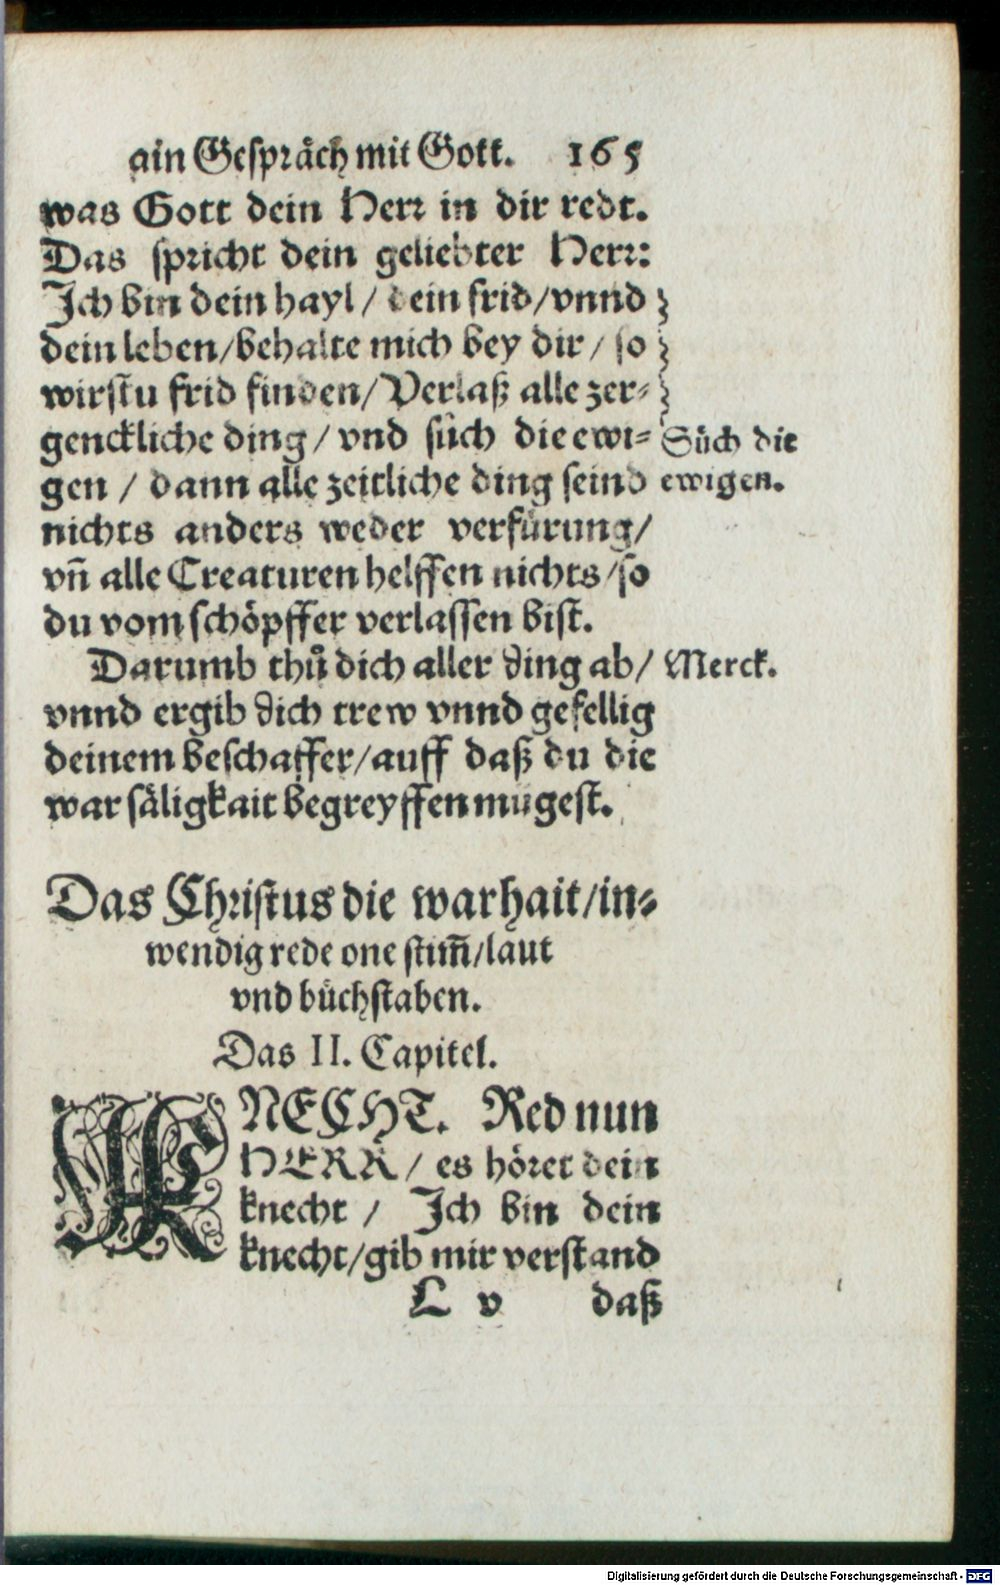 ain Gespräch mit Gott. 165
was Gott dein Herr in dir redt.
Das spricht dein geliebter Herr:
Ich bin dein hayl / dein frid/vnnd
dein leben/behalte mich bey dir / so
wirstu frid finden/Verlaß alle zer-
genckliche ding / vnd sůch die ewi-
Sůch die
gen / dann alle zeitliche ding seind
ewigen.
nichts anders weder verfürung/
vn̄ alle Creaturen helffen nichts/so
du vom schöpffer verlassen bist.
Darumb thů dich aller ding ab/
Merck.
vnnd ergib dich trew vnnd gefellig
deinem beschaffer/auff daß du die
war säligkait begreyffen mügest.
Das Christus die warhait/in-
wendig rede one stim̄/laut
vnd bůchstaben.
Das II. Capitel.
KNECHT. Red nun
HERR / es höret dein
knecht / Ich bin dein
knecht/gib mir verstand
L v daß
Digitalisierung gefördert durch die Deutsche Forschungsgemeinschaft - DFG